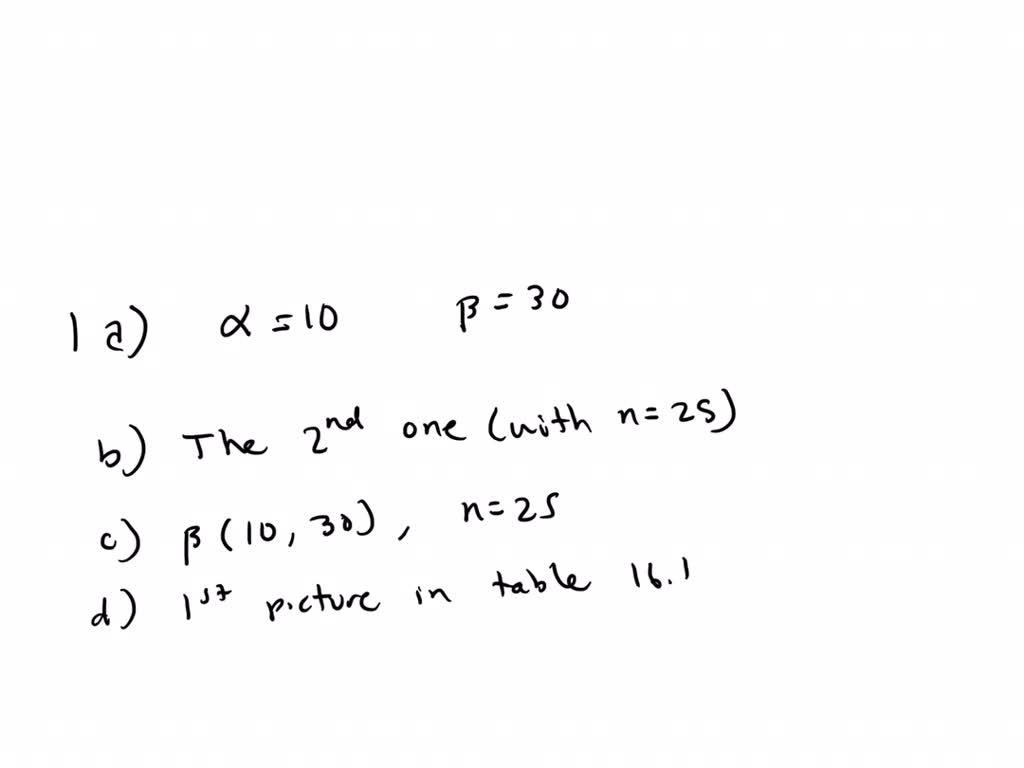 1 a) α = 10 β = 30
b) The 2nd one (with n = 25)
c) β (10, 30), n = 25
d) 1st picture in table 16.1